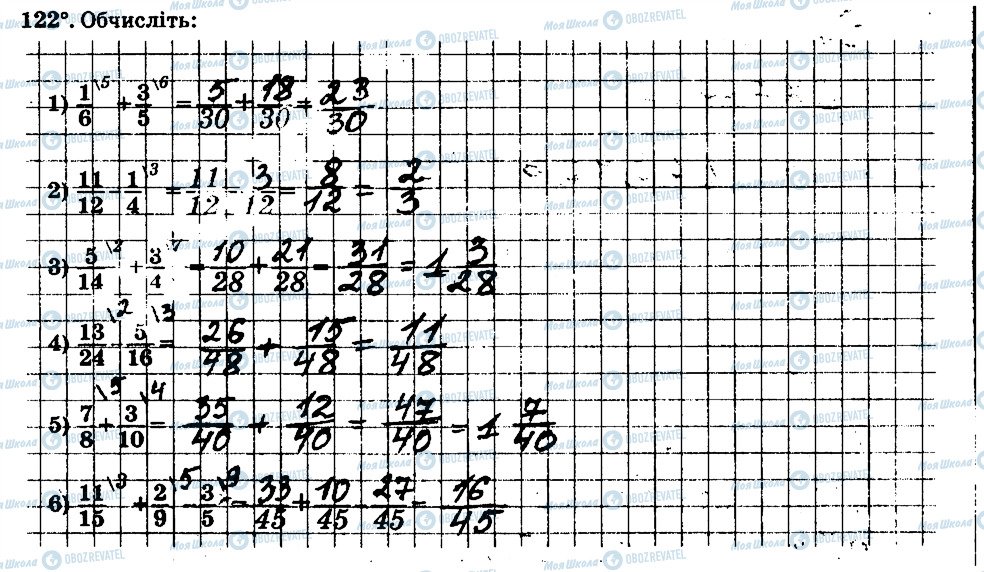 122°. Обчисліть:
1) 1/6 \5 + 3/5 \6 = 5/30 + 18/30 = 23/30
2) 11/12 - 1/4 \3 = 11/12 - 3/12 = 8/12 = 2/3
3) 5/14 \2 + 3/4 \7 = 10/28 + 21/28 = 31/28 = 1 3/28
4) 13/24 \2 - 5/16 \3 = 26/48 + 15/48 = 11/48
5) 7/8 \5 + 3/10 \4 = 35/40 + 12/40 = 47/40 = 1 7/40
6) 11/15 \3 + 2/9 \5 - 3/5 \9 = 33/45 + 10/45 - 27/45 = 16/45